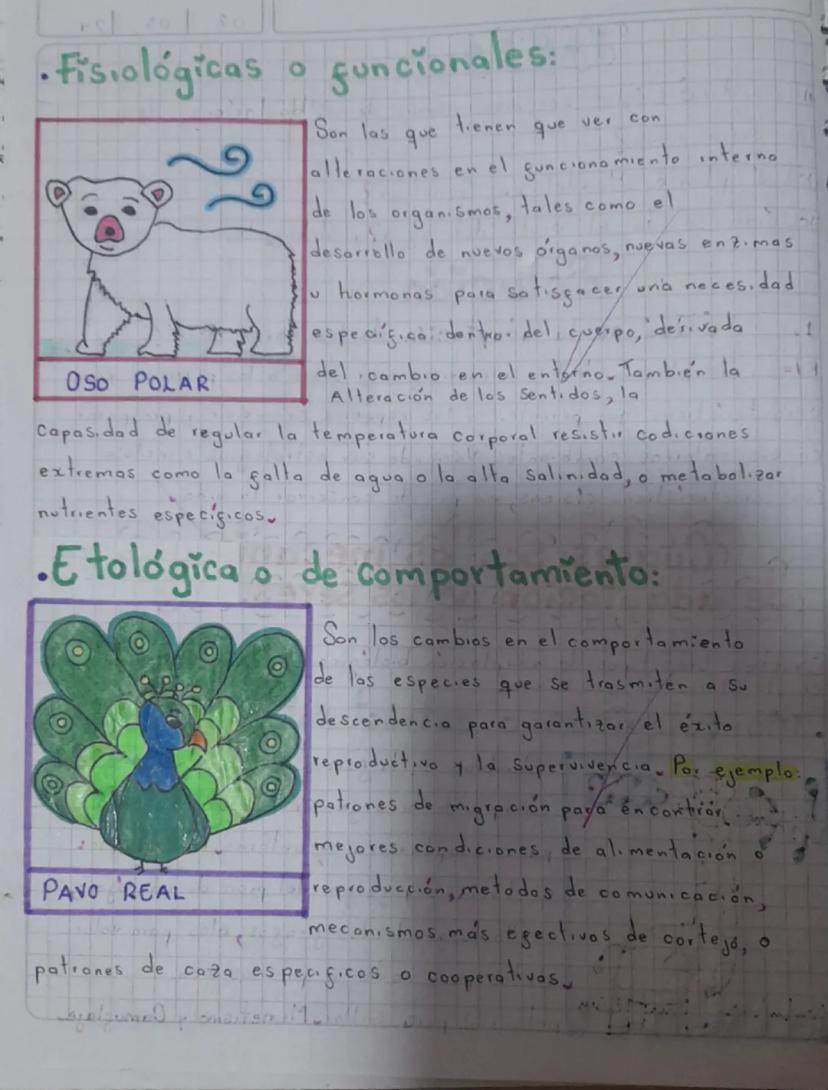 . Fisiológicas o funcionales:
Son las que tienen que ver con
alteraciones en el funcionamiento interno
de los organismos, tales como el
desarrollo de nuevos órganos, nuevas enzimas
u hormonas para satisfacer una necesidad
específica dentro del cuerpo, derivada
del cambio en el entorno. También la
Alteración de los sentidos, la
OSO POLAR
capasidad de regular la temperatura corporal resistir codiciones
extremas como la falta de agua o la alta salinidad, o metabolizar
nutrientes específicos.
. Etológica o de comportamiento:
Son los cambios en el comportamiento
de las especies que se trasmiten a su
descendencia para garantizar el éxito
reproductivo y la supervivencia. Por ejemplo:
patrones de migración para encontrar
mejores condiciones de alimentación o
reproducción, metodos de comunicación,
mecanismos más efectivos de cortejo, o
PAVO REAL
patrones de caza especificos o cooperativas.